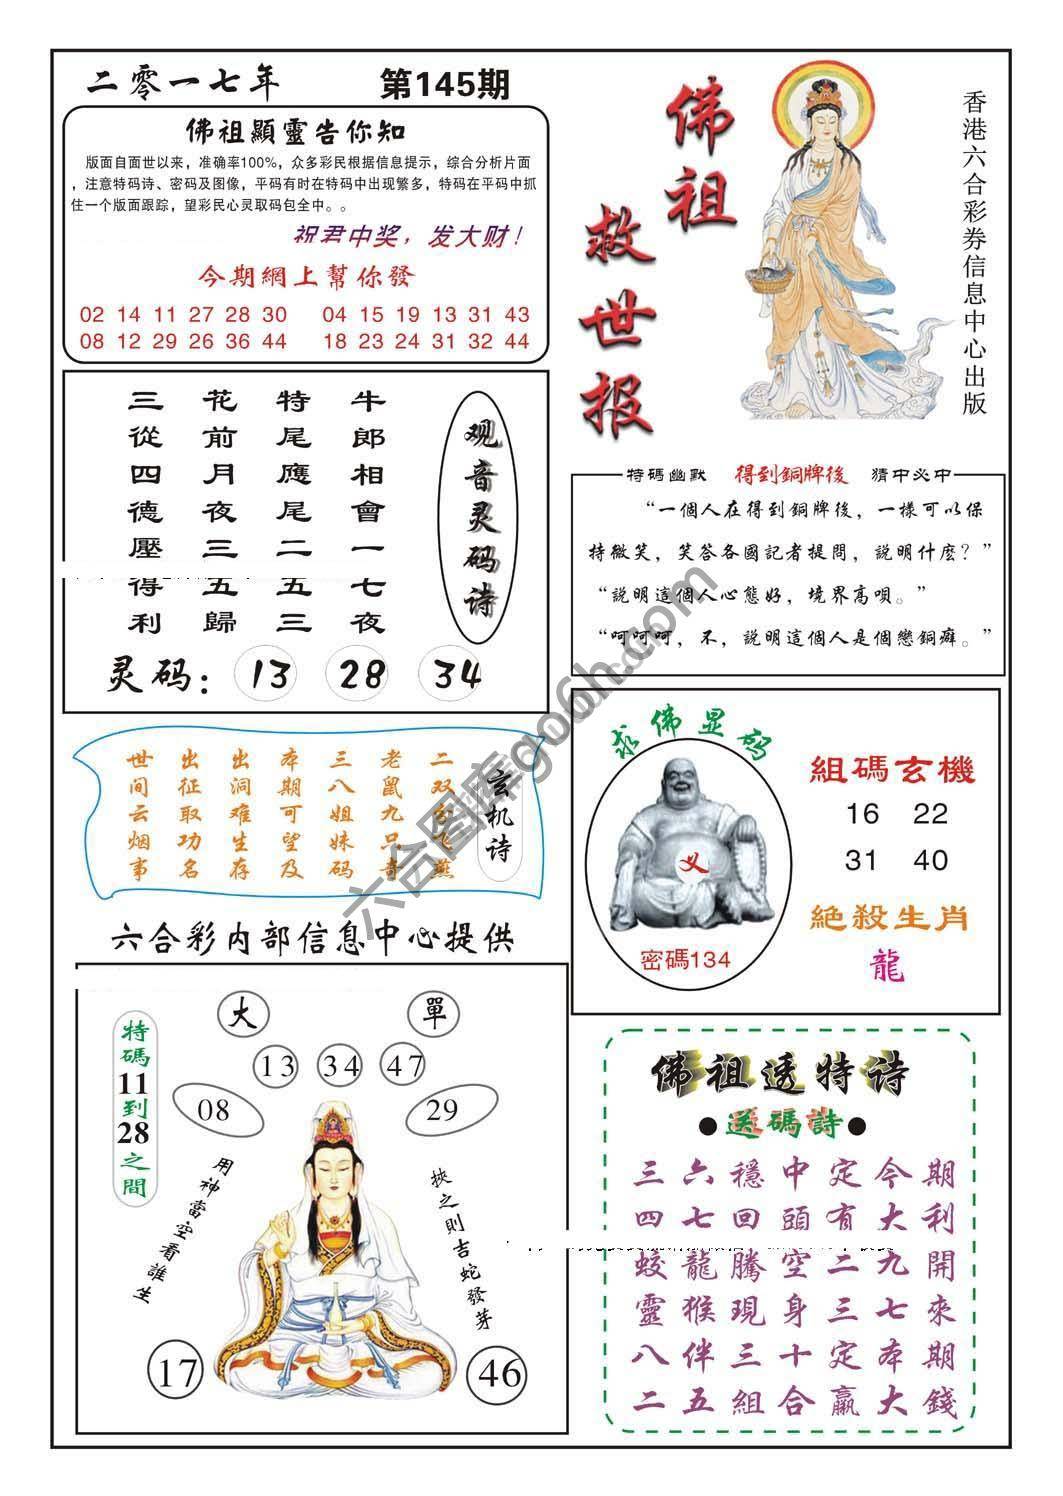 二零一七年
第145期
佛祖顯靈告你知
版面自面世以来，准确率100%，众多彩民根据信息提示，综合分析片面
，注意特码诗、密码及图像，平码有时在特码中出现繁多，特码在平码中抓
住一个版面跟踪，望彩民心灵取码包全中。。
祝君中奖，发大财！
今期網上幫你發
02 14 11 27 28 30 04 15 19 13 31 43
08 12 29 26 36 44 18 23 24 31 32 44
佛祖
救世报
香港六合彩券信息中心出版
观音灵码诗
牛郎相會一七夜
特尾應尾二五三
花前月夜三五歸
三從四德壓得利
灵码： 13 28 34
特碼幽默 得到銅牌後 猜中必中
“一個人在得到銅牌後，一樣可以保
持微笑，笑答各國記者提問，説明什麼？”
“説明這個人心態好，境界高唄。”
“呵呵呵，不，説明這個人是個戀銅癖。”
玄机诗
二双
老鼠九只
三八姐妹码
本期可望及
出洞难生存
出征取功名
世间云烟事
求佛显码
义
密碼134
組碼玄機
16 22
31 40
絕殺生肖
龍
六合彩内部信息中心提供
特碼11到28之間
大 單
13 34 47
08 29
用神當空看誰生
挾之則吉蛇發芽
17 46
佛祖透特诗
●送碼詩●
三六穩中定今期
四七回頭有大利
蛟龍騰空二九開
靈猴現身三七來
八伴三十定本期
二五組合贏大錢
六合图库go6h.com